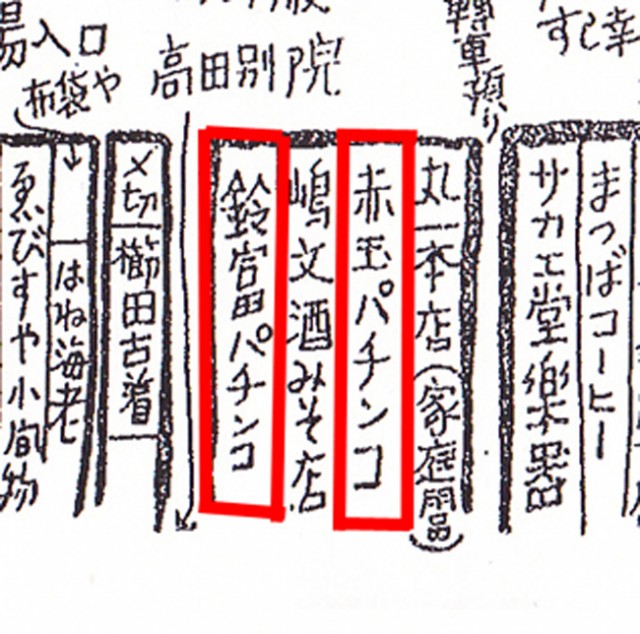 幸
すし
轉車預り
高田別院
入口
布袋や
まつばコーヒー
サカエ堂樂器
丸一本店(家庭用品)
赤玉パチンコ
嶋文酒みそ店
鈴富パチンコ
〆切
櫛田古着
はね海老
ゑびすや小間物